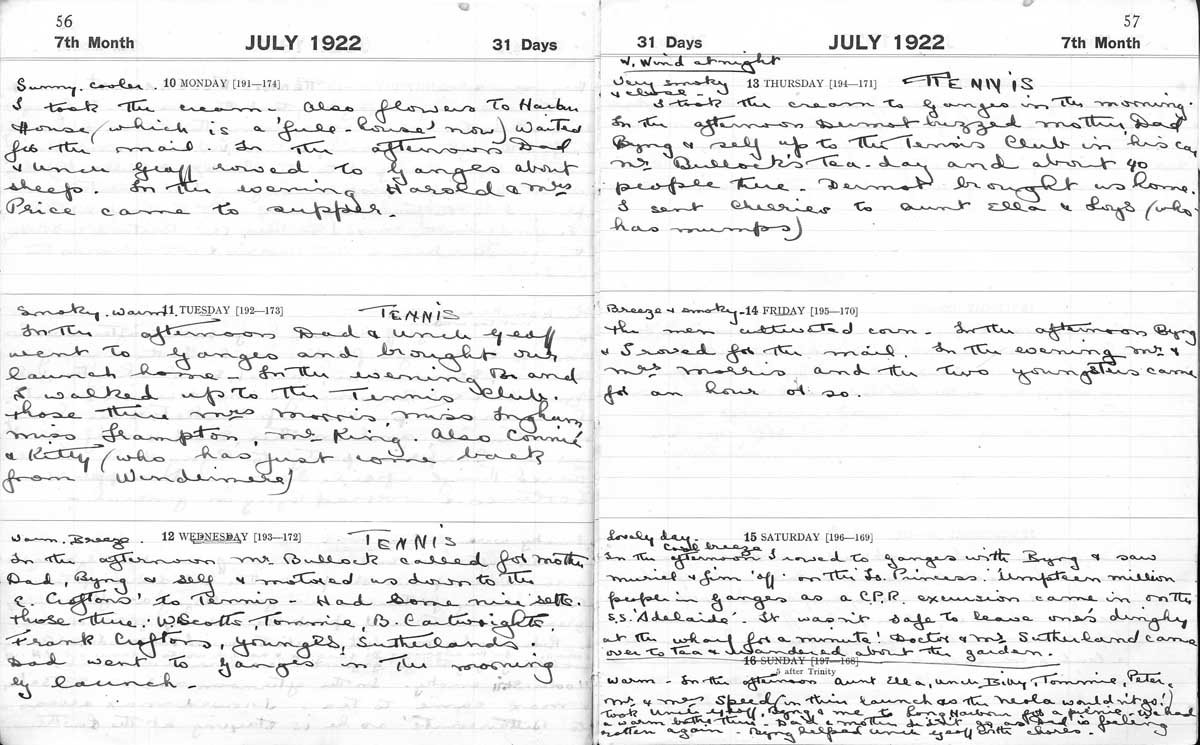 56
7th Month JULY 1922 31 Days
Sunny. cooler. 10 MONDAY [191—174]
I took the cream - Also flowers to Harbour
House (which is a 'full-house' now) Waited
for the mail. In the afternoon Dad
& Uncle Geoff rowed to Ganges about
sheep. In the evening Harold & Mrs
Price came to supper.
Smoky. warm. 11 TUESDAY [192—173] TENNIS
In the afternoon Dad & Uncle Geoff
went to Ganges and brought our
launch home - In the evening B. and
I walked up to the Tennis Club.
Those there Mrs Morris, Miss Ingham,
Miss Frampton, Mr King. Also Connie
& Kitty (who has just come back
from Windimere)
Warm. Breeze. 12 WEDNESDAY [193—172] TENNIS
In the afternoon Mr Bullock called for Mother
Dad, Byng & self & motored us down to the
E. Croftons' to Tennis - Had some nice setts.
Those there: W. Scotts, Tommie, B. Cartwrights
Frank Croftons, Youngs, Sutherlands.
Dad went to Ganges in the morning
by launch -
57
31 Days JULY 1922 7th Month
W. Wind at night
Very smoky 13 THURSDAY [194—171] TENNIS
& close -
I took the cream to Ganges in the morning.
In the afternoon Dermot buzzed Mother, Dad
Byng & self up to the Tennis Club in his car
Mr Bullock's Tea-day and about 40
people there. Dermot brought us home.
I sent cherries to Aunt Ella & Loys (who
has mumps)
Breeze & smoky - 14 FRIDAY [195—170]
The men cultivated corn - In the afternoon Byng
& I rowed for the mail. In the evening Mr &
Mrs Morris and the two youngsters came
for an hour or so.
Lovely day. 15 SATURDAY [196—169]
Cool breeze
In the afternoon I rowed to Ganges with Byng & saw
Muriel & Jim 'off' on the Is. Princess. Umpteen million
people in Ganges as a C.P.R. excursion came in on the
S.S. 'Adelaide'. It wasn't safe to leave one's dinghy
at the wharf for a minute! Doctor & Mrs Sutherland came
over to tea & wandered about the garden.
16 SUNDAY [197—168]
5 after Trinity
Warm - In the afternoon Aunt Ella, Uncle Billy, Tommie, Peter,
Mr & Mrs Speed (in their launch as the Neola wouldn't go!)
took Uncle Geoff, Byng & me to Long Harbour for a picnic. We had
a warm bathe there. Dad & Mother didn't go as Dad is feeling
rotten again - Byng helped Uncle Geoff with chores.